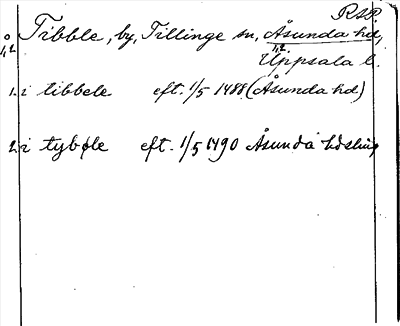 RSP.
0 Tibble, by, Tillinge sn, Åsunda hd,
1,2 1,2
Uppsala l.
1. i tibbele eft. 1/5 1488 (Åsunda hd)
2. i tybøle eft. 1/5 1490 Åsunda hds